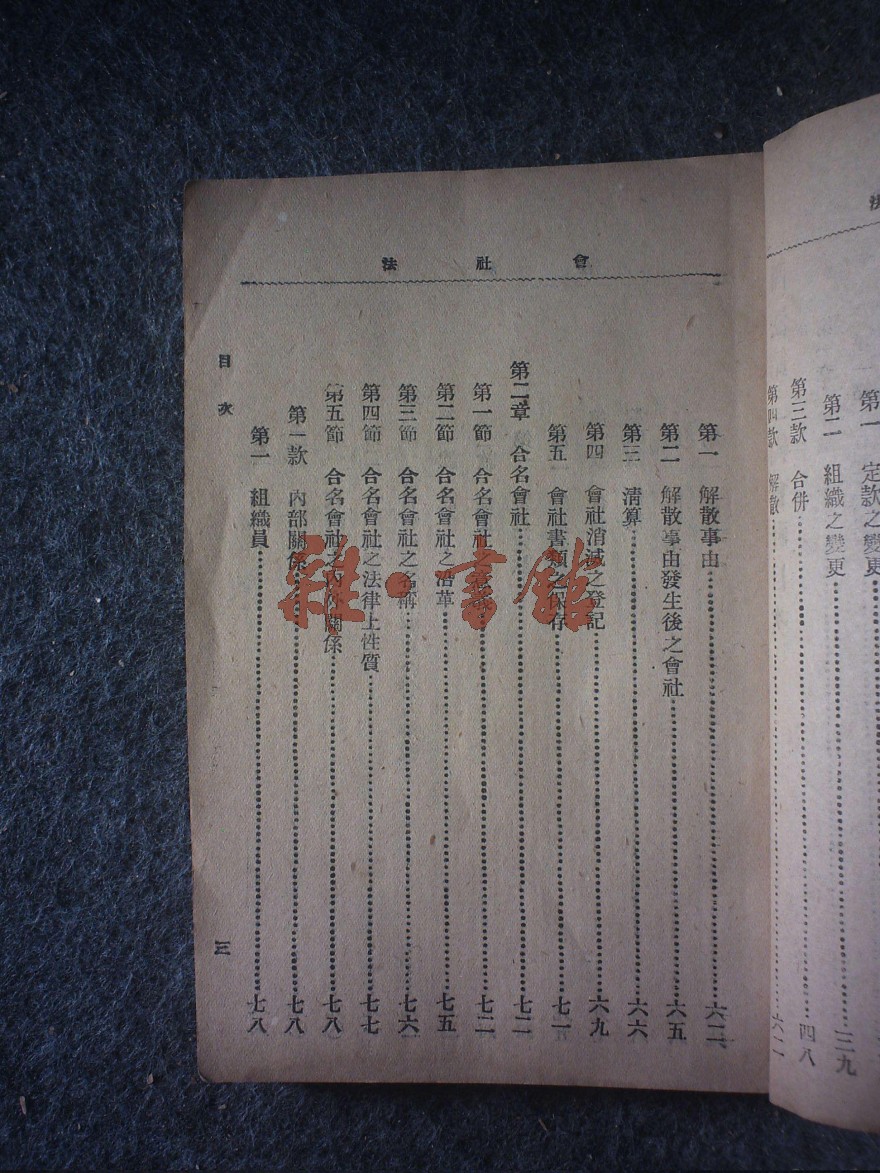 第一 定款之變更
第二 組織之變更……三九
第三款 合併……四八
第四款 解散……六二
會社法
第一 解散事由……六二
第二 解散事由發生後之會社……六五
第三 清算……六六
第四 會社消滅之登記……六九
第五 會社書類之保存……七一
第二章 合名會社……七二
第一節 合名會社之意義……七二
第二節 合名會社之沿革……七五
第三節 合名會社之名稱……七六
第四節 合名會社之法律上性質……七七
第五節 合名會社之內外關係……七八
第一款 內部關係……七八
第一 組織員……七八
目次
三
雜·書館